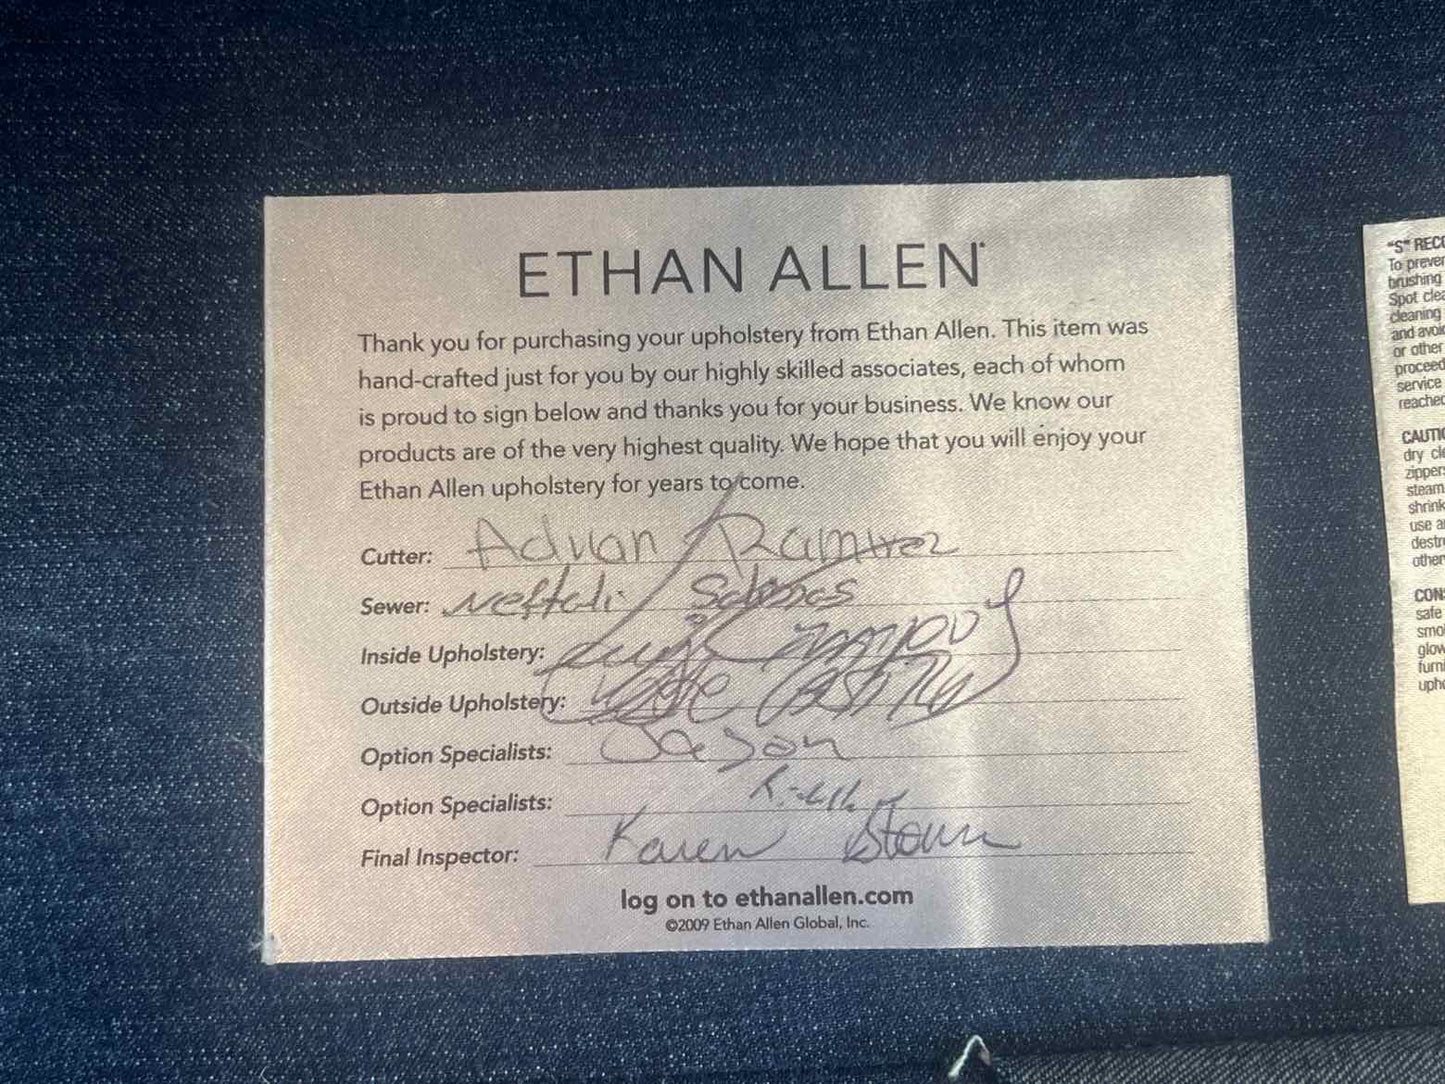 ETHAN ALLEN
Thank you for purchasing your upholstery from Ethan Allen. This item was
hand-crafted just for you by our highly skilled associates, each of whom
is proud to sign below and thanks you for your business. We know our
products are of the very highest quality. We hope that you will enjoy your
Ethan Allen upholstery for years to come.
Cutter: Adrian Ramirez
Sewer: Neftali
Inside Upholstery:
Outside Upholstery:
Option Specialists: Jason
Option Specialists:
Final Inspector: Karen
log on to ethanallen.com
©2009 Ethan Allen Global, Inc.
"S"
To
brushing
Spot
cleaning
and
or other
service
CAUTI
dry
steam
use
other
safe